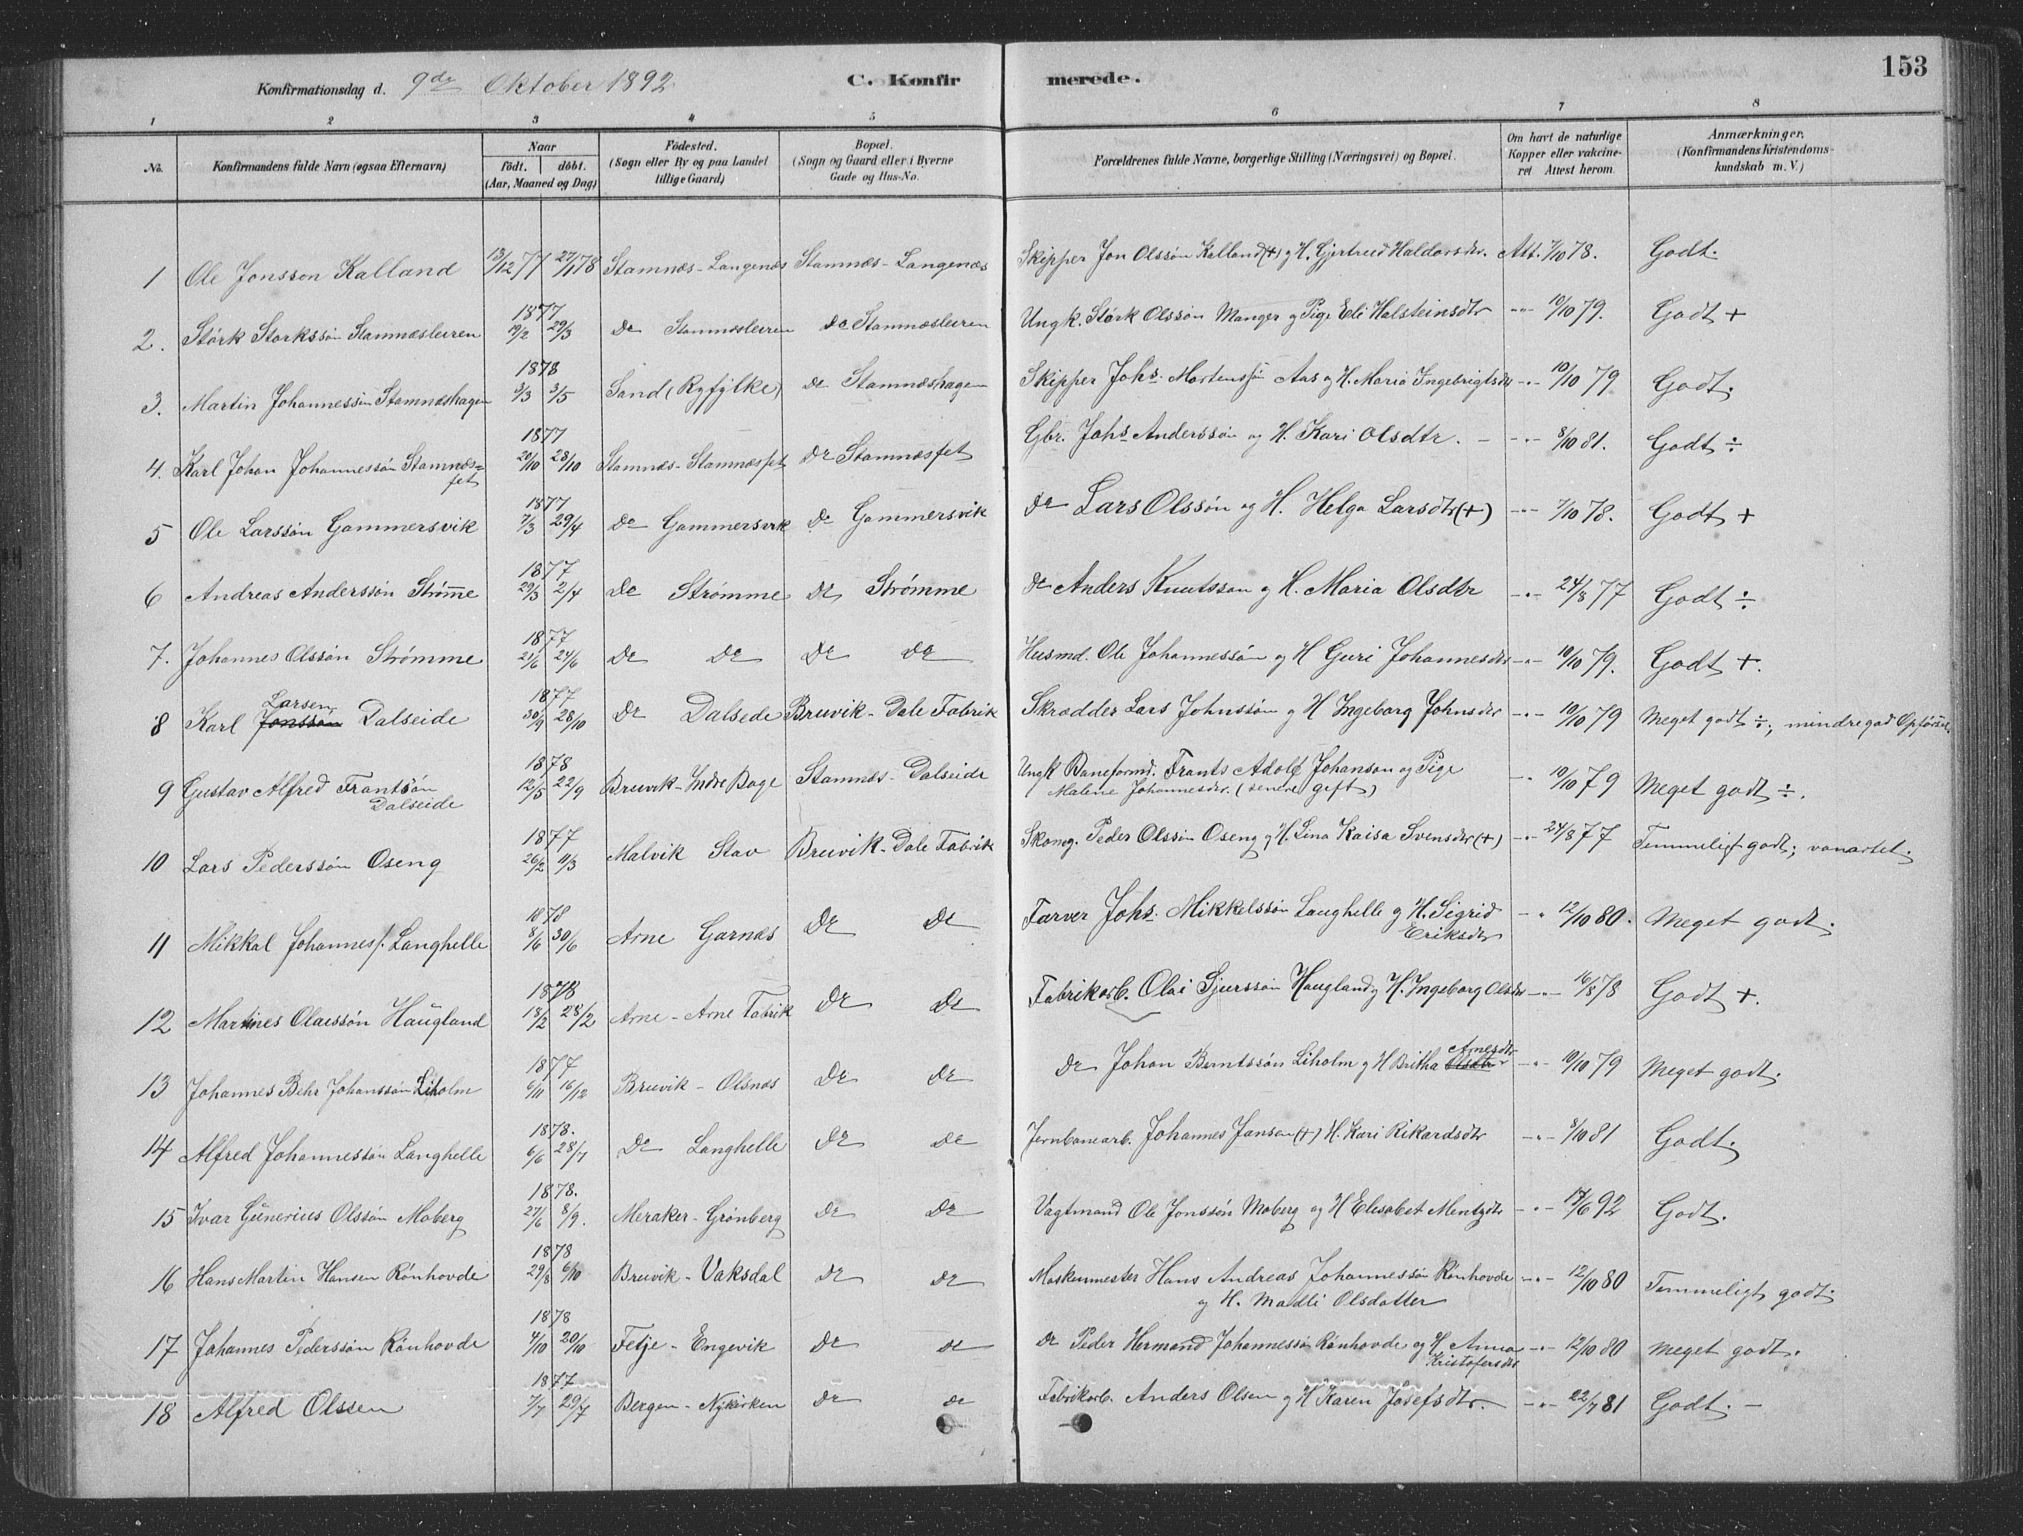 153
Konfirmationsdag d. 9de Oktober 1892. C. Konfirmerede.
1 2 3 4 5 6 7 8
No. Konfirmandens fulde Navn (ogsaa Efternavn) Naar født. døbt. (Aar, Maaned og Dag) Fødested. (Sogn eller By og paa Landet tillige Gaard) Bopæl. (Sogn og Gaard eller i Byerne Gade og Hus-No. Forældrenes fulde Navne, borgerlige Stilling (Næringsvei) og Bopæl. Om havt de naturlige Kopper eller vakcineret Attest herom. Anmærkninger. (Konfirmandens Kristendomskundskab m. V.)
1 Ole Jonsson Kalland 13/12 77 27/1 78 Stamnæs - Langenæs Stamnæs - Langenæs Skipper Jon Olssøn Kalland (+) og H. Gjertrud Haldorsdtr. Att. 7/10 78. Godt.
2. Størk Storkssøn Stamnæsleiren 1877 19/2 29/3 do Stamnæsleiren do Stamnæsleiren Ungk. Størk Olssøn Manger og Pige Eli Halsteinsdtr -"- 10/10 79. Godt +
3. Martin Johannessøn Stamnæshagen 1878 3/3 3/5 Sand (Ryfylke) do Stamnæshagen Skipper Johs. Martenssøn Aas og H. Maria Ingebrigtsdtr -"- 10/10 79 Godt.
4. Karl Johan Johannessøn Stamnæs=
fet 1877 20/10 28/10 Stamnæs - Stamnæsfet do Stamnæsfet Gbr. Johs Anderssøn og H. Kari Olsdtr. - -"- 8/10 81. Godt ÷
5 Ole Larssøn Gammersvik 1877 7/3 29/4 do Gammersvik do Gammersvik do Lars Olssøn og H. Helga Larsdtr (+) -"- 7/10 78. Godt +
6 Andreas Anderssøn Strømme 1877 29/3 2/4 do Strømme do Strømme do Anders Knutsson og H. Maria Olsdtr -"- 24/8 77 Godt ÷
7. Johannes Olssøn Strømme 1877 21/6 24/6 do do do do Husmd. Ole Johannessøn og H Guri Johannesdtr -"- 10/10 79. Godt +.
8 Karl Larsen Jonsson Dalseide 1877 30/9 28/10 do Dalsede Bruvik - Dale Fabrik Skrædder Lars Johnssøn og H Ingeborg Johnsdtr -"- 10/10 79 Meget godt ÷; mindre god Opførsel
9 Gustav Alfred Frantsøn
Dalseide 1878 12/5 22/9 Bruvik - Indre Boge Stamnæs - Dalseide Ungk Baneformd. Frants Adolf Johanson og Pige
Malene Johannesdtr. (senere gift) -"- 10/10 79 Meget godt ÷.
10 Lars Pederssøn Oseng 1877 26/2 11/3 Malvik Stav Bruvik - Dale Fabrik Peder Olssøn Oseng og H. Lina Kaisa Svensdtr (+) -"- 24/8 77 Temmeligt godt; vanartet.
11 Mikkal Johanness. Langhelle 1878 8/6 30/6 Arne Garnæs do do Farver Johs. Mikkelssøn Langhelle og H. Sigrid
Eriksdtr -"- 12/10 80. Meget godt.
12 Martines Olaissøn Haugland 1878 18/2 28/2 Arne - Arne Fabrik do do Fabrikarb. Olai Sjurssøn Haugland og H. Ingeborg Olsdtr -"- 16/8 78 Godt +.
13 Johannes Behr Johanssøn Liholm 1877 6/11 16/12 Bruvik - Olsnæs do do do Johan Berntssøn Liholm og H Britha Arnesdtr Olsdtr -"- 10/10 79 Meget godt.
14 Alfred Johannessøn Langhelle 1878. 6/6 28/7 do Langhelle do do Jernbanearb. Johannes Jansen (+) H. Kari Rikardsdtr -"- 8/10 81 Godt.
15 Ivar Gunerius Olssøn Moberg 1878. 27/6 8/9. Meraker - Grønberg do do Vagtmand Ole Jonssøn Moberg og H Elisabet Mentzdtr -"- 17/6 92 Godt.
16 Hans Martin Hansen Rønhovde 1878 29/8 6/10 Bruvik - Vaksdal do do Maskinmester Hans Andreas Johannessøn Rønhovde
og H. Madli Olsdatter -"- 12/10 80 Temmeligt godt.
17 Johannes Pederssøn Rønhovde 1878 4/10 20/10 Fetje - Engevik do do do Peder Hermand Johannessøn Rønhovde og H Anna
Kristofersdtr -"- 12/10 80 Meget godt.
18 Alfred Olssen 1877 7/7 29/7 Bergen - Nykirken do do Fabrikarb. Anders Olsen og H Karen Josefsdtr. -"- 22/7 81 Godt. -